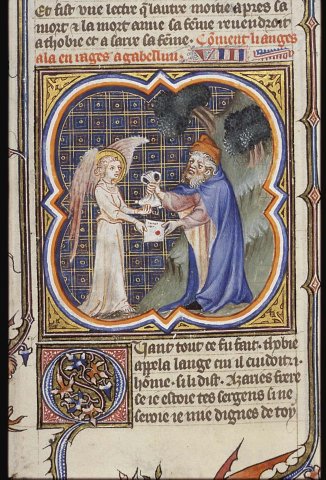 Et fist une lectre q̃ lautre moitie apres sa
mort ⁊ la mort anne sa feme reuendroit
a thobie et a sarre sa feme. Cõment li anges
ala en rages a gabellum. VIII
Quant tout ce fu fait. thobie
appela lange cui il cuidoit
home. si li dist. Azaries frere
se ie estoie tes sergens si ne
seroie ie mie dignes de toy